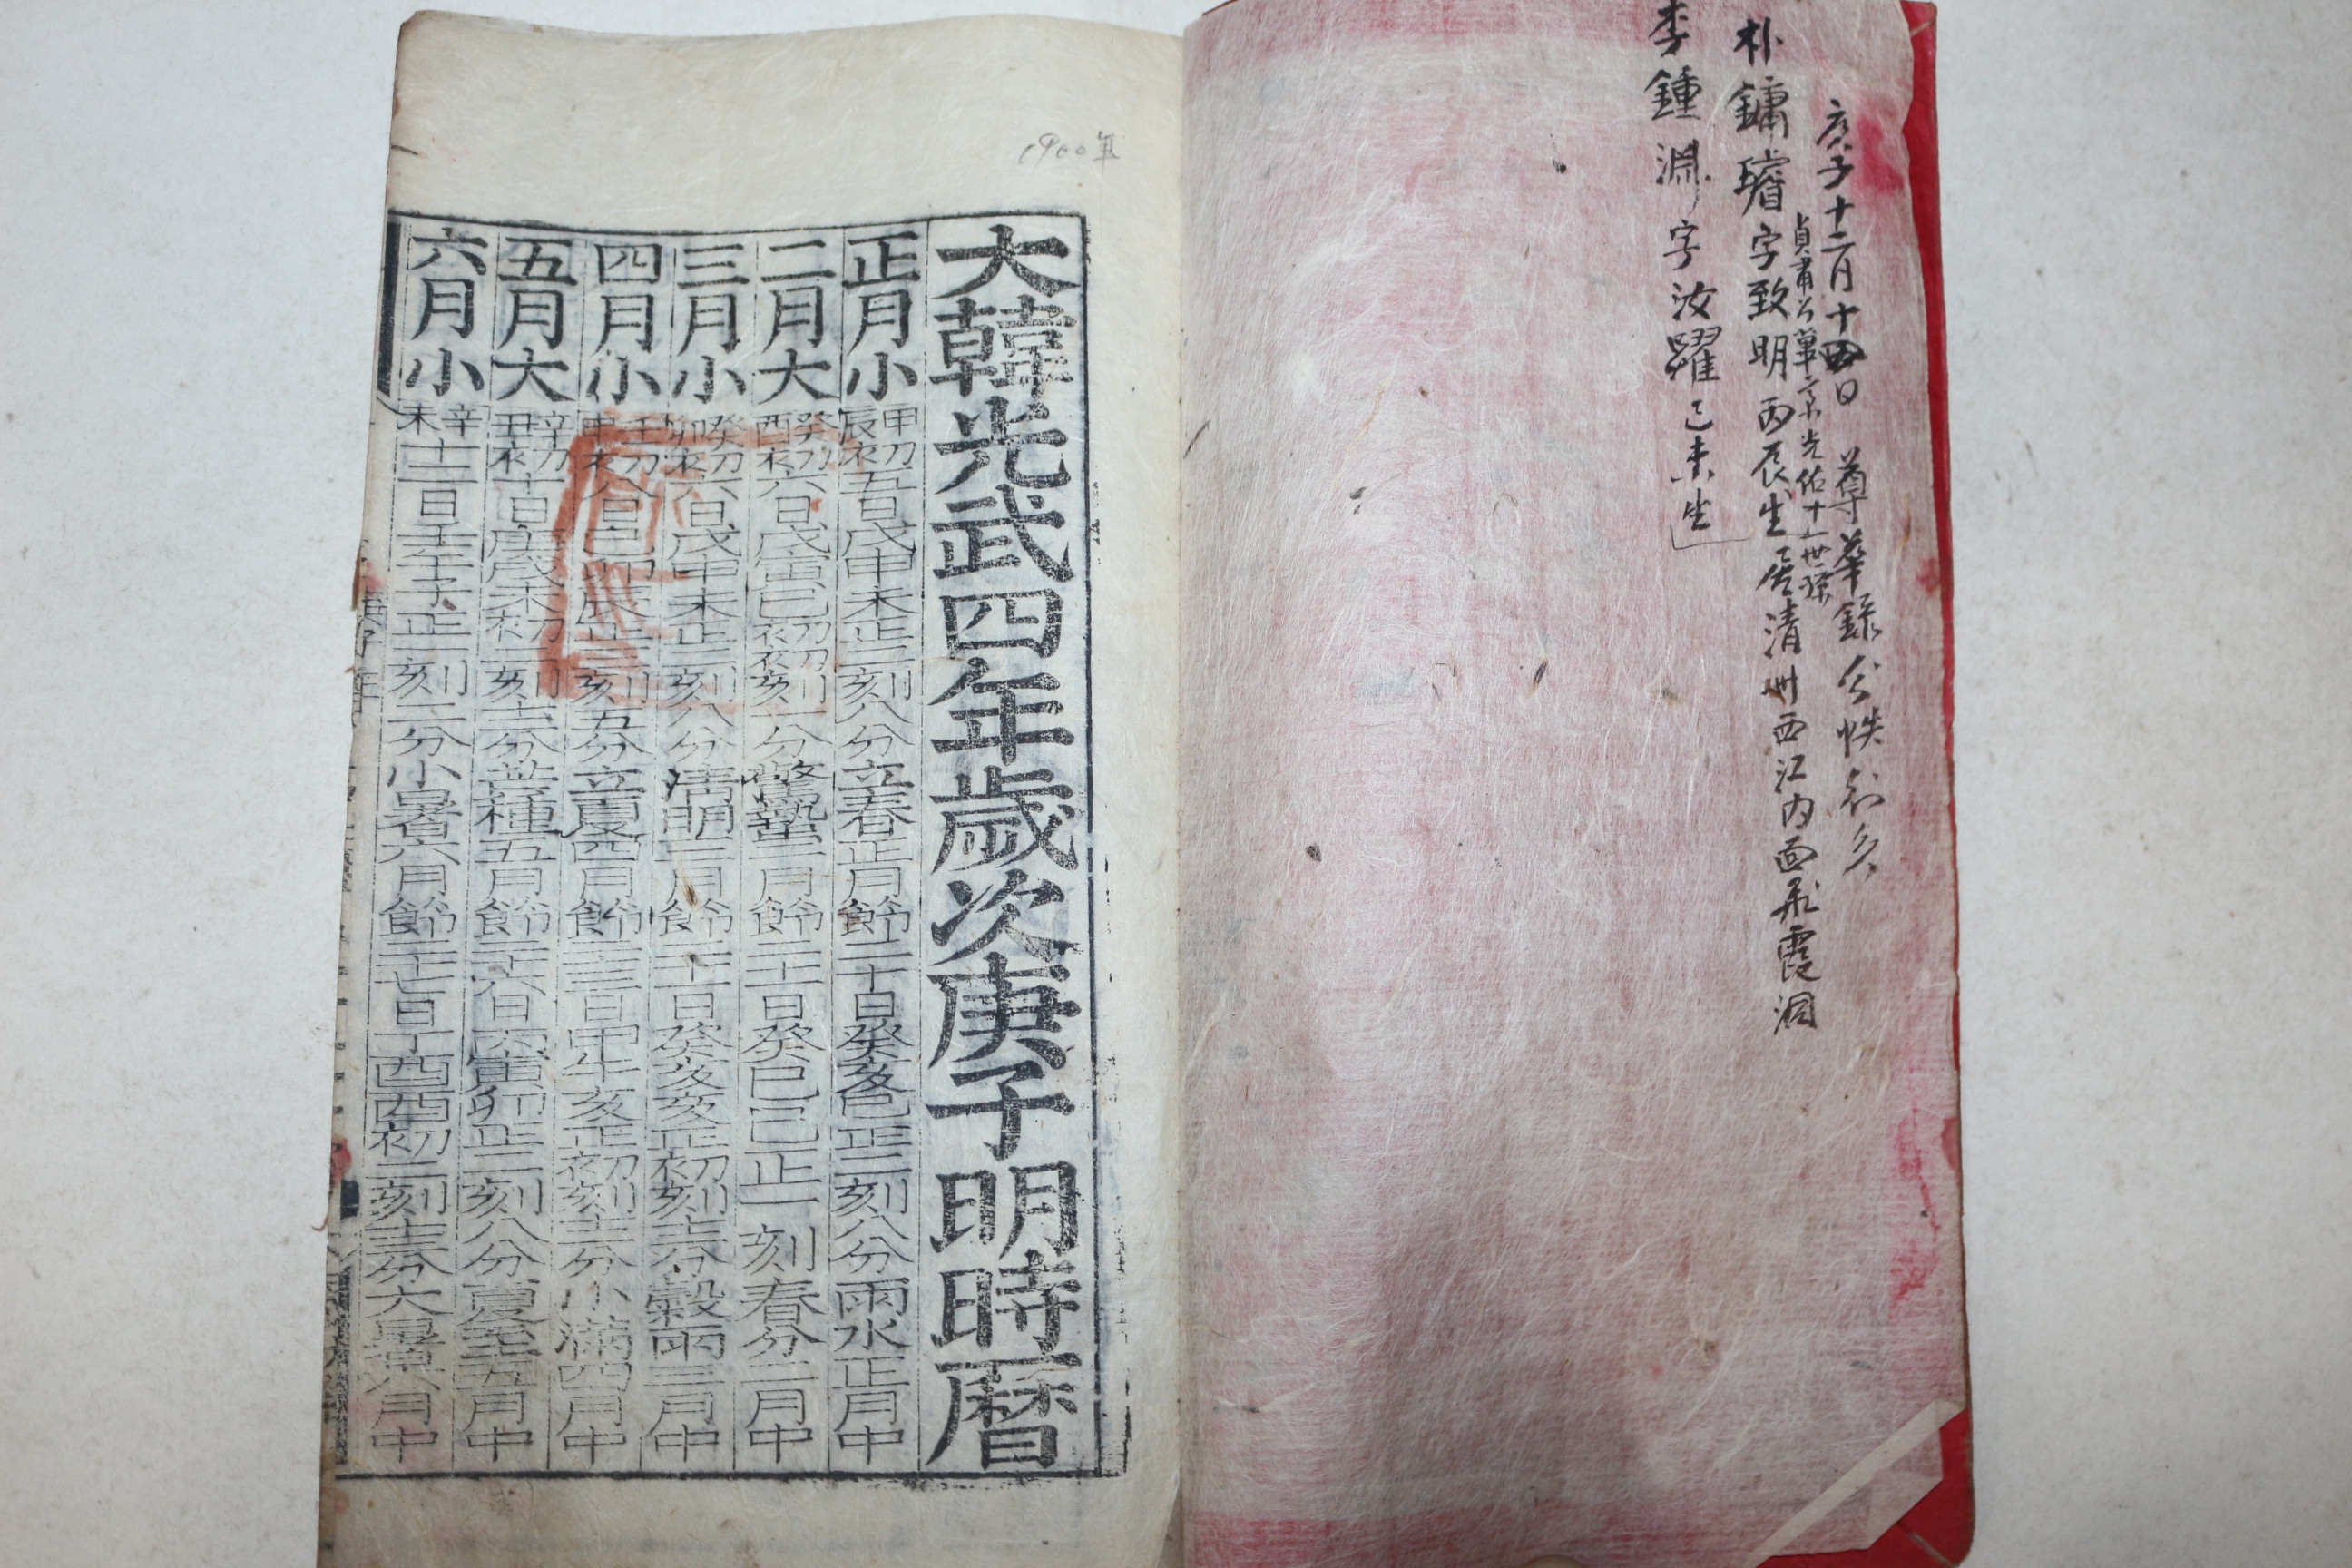 庚子十二月十四日 尊華錄分帙刻分
貞肅公 光佑十一世孫
朴鏞璿字致明丙辰生居清州西江內面飛霞洞
李鍾淵字汝躍己未生
1900年
大韓光武四年歲次庚子明時曆
正月小 甲辰 初五日戊申未正三刻八分立春正月節二十日癸亥巳正三刻八分雨水正月中
二月大 癸酉 初六日戊寅巳初初刻一分驚蟄二月節二十一日癸巳巳正一刻春分二月中
三月小 癸卯 初六日戊申未正三刻八分清明三月節二十一日癸亥亥正初刻十三分穀雨三月中
四月小 壬申 初八日己卯辰正三刻五分立夏四月節二十三日甲午亥正初刻十三分小滿四月中
五月大 辛丑 初十日庚戌未初二刻十三分芒種五月節二十六日丙寅卯正三刻八分夏至五月中
六月小 辛未 十二日壬午子正一刻二分小暑六月節二十七日丁酉酉初二刻十三分大暑六月中